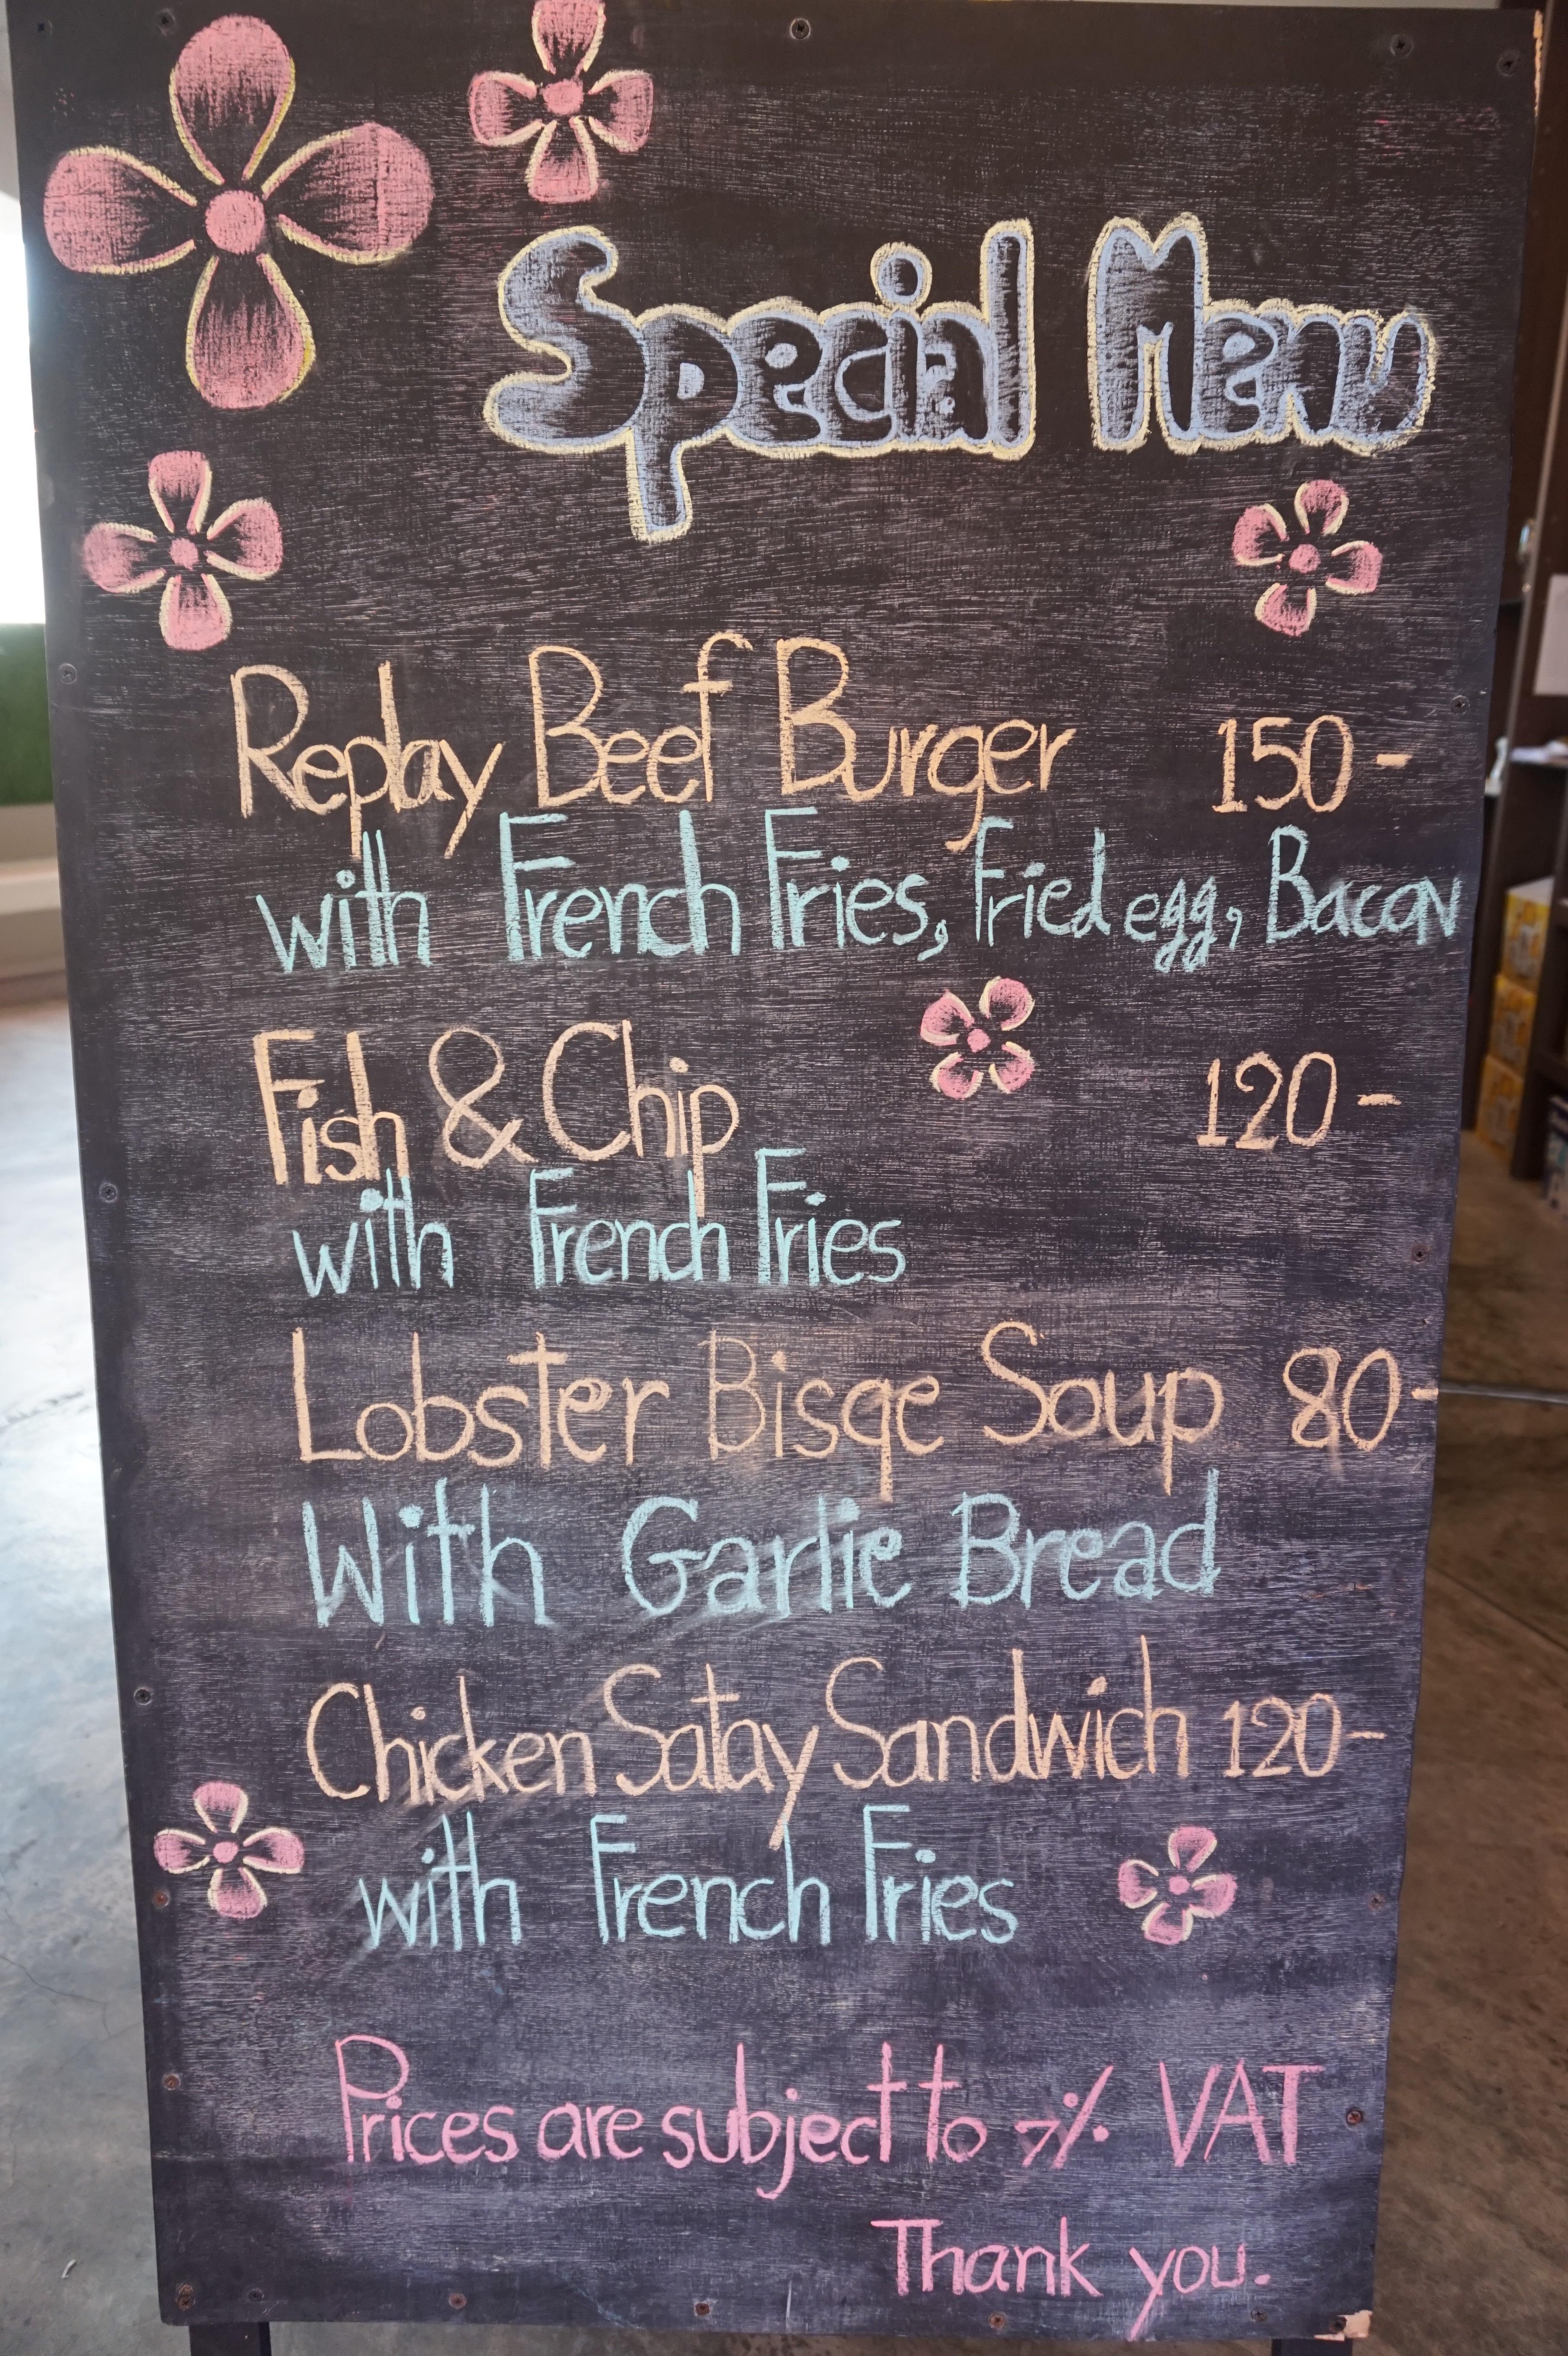 Special Menu
Replay Beef Burger 150-
with French Fries, Fried egg, Bacon
Fish & Chip 120-
with French Fries
Lobster Bisqe Soup 80-
With Garlie Bread
Chicken Satay Sandwich 120-
with French Fries
Prices are subject to 7% VAT
Thank you.